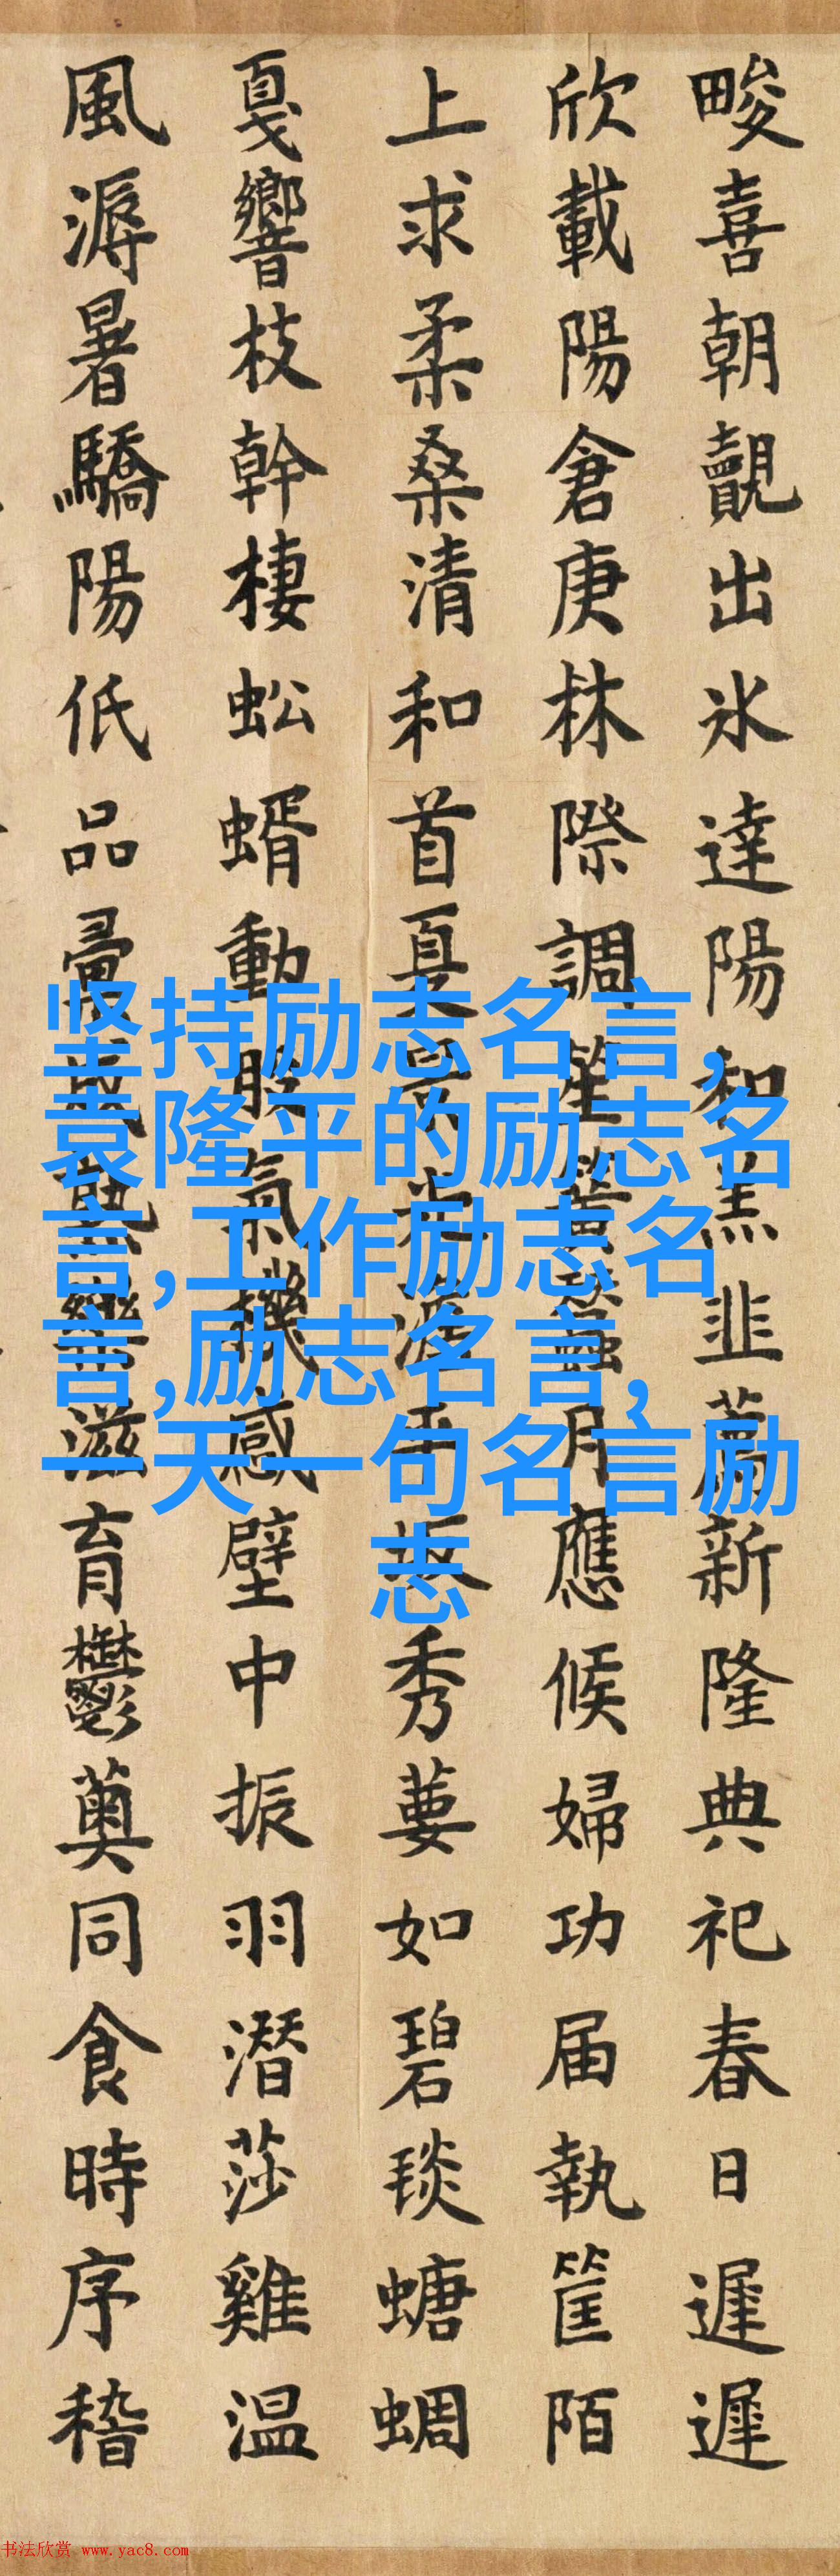 畯喜朝觀出冰達陽和羔韭薦新隆典祀春日遲遲
欣載陽倉庚林際調笙簧蠶月應候婦功届執筐陌
上求柔桑清和首夏景秀葽如碧琰螗蜩
戛響枝幹棲蚣蝑動股氣機感壁中振羽潜莎雞温
風溽暑驕陽低品彙滋育鬱薁同食時序稽
坚持励志名言,
袁隆平的励志名
言,工作励志名
言,励志名言,
一天一句名言励
志
书法欣赏 www.yac8.com